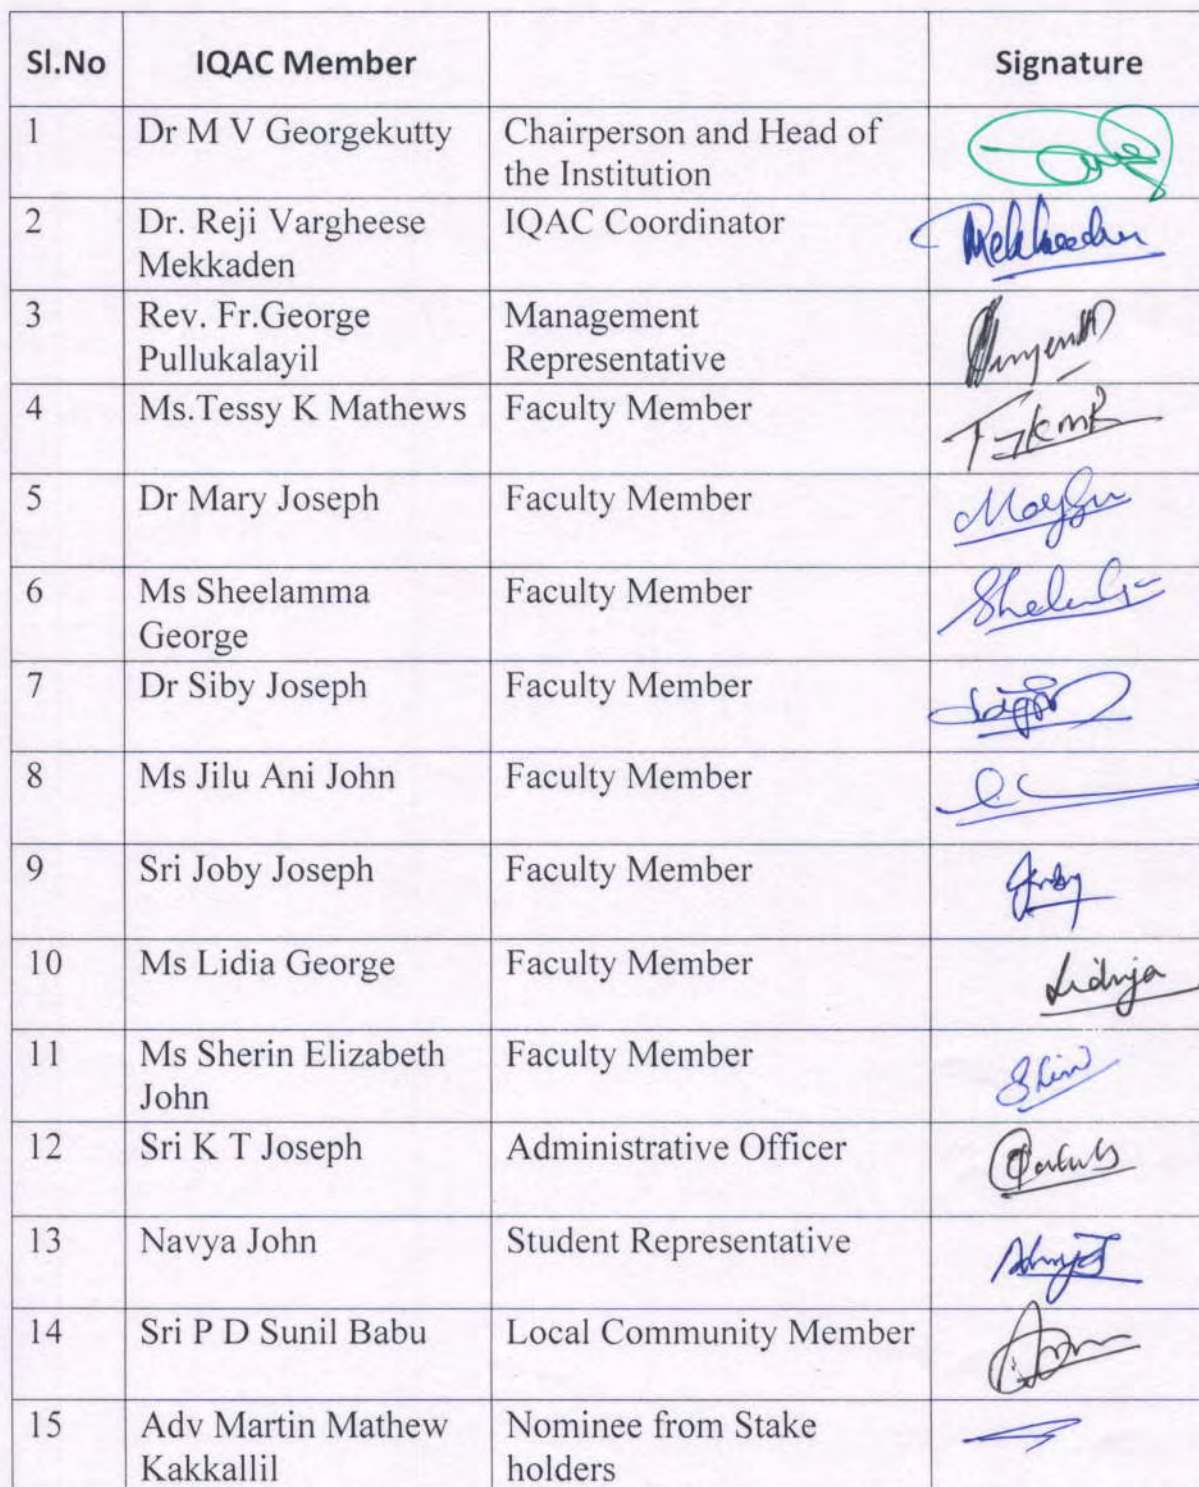 Sl.No IQAC Member Signature
1 Dr M V Georgekutty Chairperson and Head of
the Institution
2 Dr. Reji Vargheese IQAC Coordinator
Mekkaden
3 Rev. Fr.George Management
Pullukalayil Representative
4 Ms.Tessy K Mathews Faculty Member
5 Dr Mary Joseph Faculty Member
6 Ms Sheelamma Faculty Member
George
7 Dr Siby Joseph Faculty Member
8 Ms Jilu Ani John Faculty Member
9 Sri Joby Joseph Faculty Member
10 Ms Lidia George Faculty Member
11 Ms Sherin Elizabeth Faculty Member
John
12 Sri K T Joseph Administrative Officer
13 Navya John Student Representative
14 Sri P D Sunil Babu Local Community Member
15 Adv Martin Mathew Nominee from Stake
Kakkallil holders